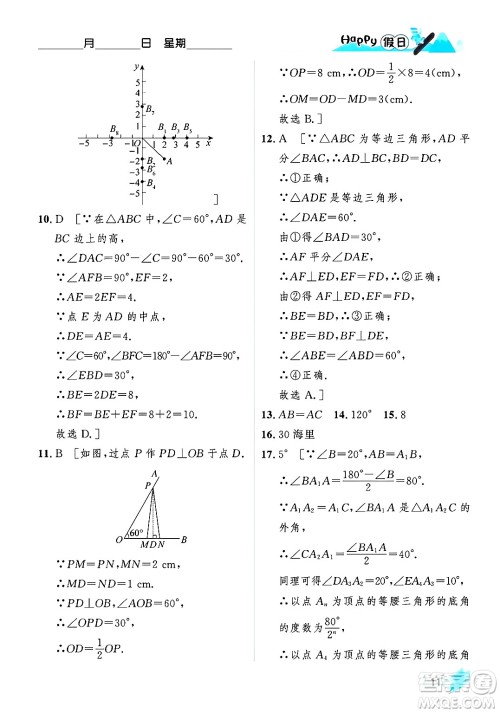 月 日 星期
Happy 假日
y
5
4
3
2
1
B₇
B₆
B₁ B₃ B₅
-5 -3 -1 O 1 2 3 4 5 x
-1
-2
-3
-4
A
B₂
B₄
B₈
]
10. D [∵在△ABC中,∠C=60°,AD是
BC边上的高,
∴∠DAC=90°-∠C=90°-60°=30°.
∵∠AFB=90°,EF=2,
∴AE=2EF=4.
∵点E为AD的中点,
∴DE=AE=4.
∵∠C=60°,∠BFC=180°-90°=90°,
∴∠EBD=30°.
∴BE=2DE=8.
∴BF=BE+EF=8+2=10.
故选D.]
11. B [如图,过点P作PD⊥OB于点D.
A
P
60°
O MDN B
∵PM=PN,MN=2 cm,
∴MD=ND=1 cm.
∵PD⊥OB,∠AOB=60°,
∴∠OPD=30°.
∴OD=1/2OP.
∵OP=8 cm,∴OD=1/2×8=4(cm).
∴OM=OD-MD=3(cm).
故选B.]
12. A [∵△ABC为等边三角形,AD平
分∠BAC,∴AD⊥BC,BD=DC.
∴①正确.
∵△ADE是等边三角形,
∴∠DAE=60°.
由①得∠CAD=30°,
∴AF平分∠DAE.
∴AF⊥ED,EF=FD.∴②正确.
由②得AF⊥ED,EF=FD,
∴BE=BD=DC.∴③正确.
∵BE=BD,AE=AD,
∴∠ABE=∠ABF=60°.
∴④正确.
故选A.]
13. AB=AC 14. 120° 15. 8
16. 30海里
17. 5° [∵∠B=20°,AB=A₁B,
∴∠BA₁A=(180°-∠B)/2=80°.
∵A₁A₂=A₁C,∠BA₁A是△A₁A₂C的
外角,
∴∠CA₂A₁=∠BA₁A/2=40°.
同理可得∠DA₃A₂=20°,∠EA₄A₃=10°.
∴以点Aₙ为顶点的等腰三角形的底角
的度数为80°/2ⁿ.
∴以点A₄为顶点的等腰三角形的底角
11